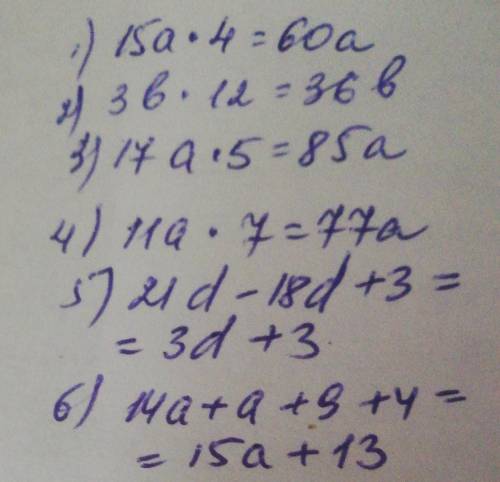 1) 15a · 4 = 60a
2) 3b · 12 = 36b
3) 17a · 5 = 85a
4) 11a · 7 = 77a
5) 21d - 18d + 3 =
= 3d + 3
6) 14a + a + 9 + 4 =
= 15a + 13